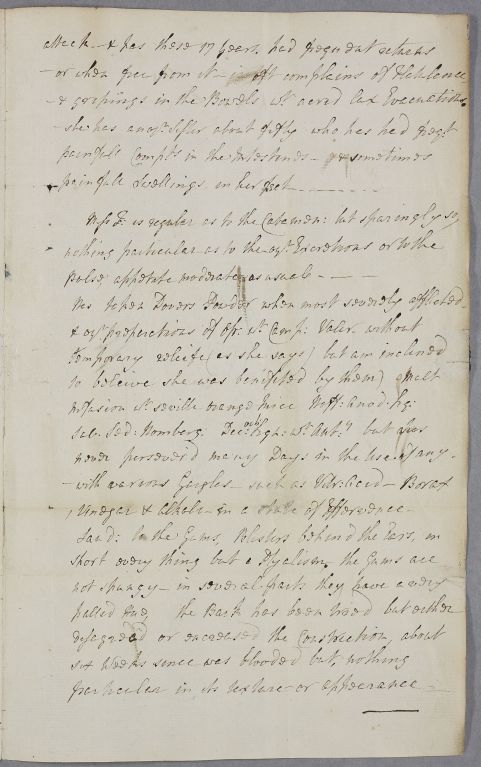 attack – & has these 17 years had frequent returns
– or when free from it – is oft complains of Flatulence
– & gripings in the Bowels wt acred lax Evacuations.
– she has a oyr sister about fifty who has had freqt
painfull Compts in the Intestines – & sometimes
– painfull swellings in her feet – – – – – –
Miss F. is regular as to the Catamen: but sparingly so,
nothing particular as to the oyr Excretions or to the
pulse, appetite moderate as usual – – –
has taken Dovers Powder when most severely afflicted
& oyr preparations of Op: wt Camp: Valer. without
temporary reliefe (as she says) but am inclined
to beleive she was benifited by them) a malt
infusion wt seville orange juice Hoff: anod: liq:
Sal: Sed: Homberg. Decoctum lign: wt Ant: but has
never persever'd many Days in the use of any.
– with various Gargles – such as Vitr: acid – Borax
, Vinegar & alkali – in a state of Effervence –
Laud: to the Gums, Blisters behind the Ears, in
short every thing but a Ptyalism. the Gums are
not spungy – in several parts they have a very
palled hue, the Bark has been tried but either
disagread or encreased the Constriction, about
six Weeks since was blooded but nothing
particular in its texture or appearance –